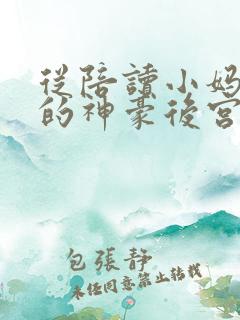 從陪讀小媽
的神豪後宮
包張靜
未经同意禁止转载